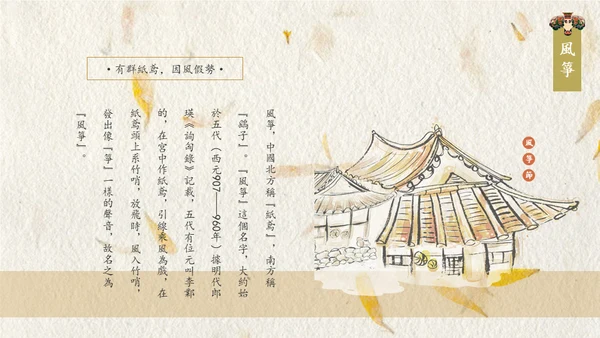 風箏
·有群紙鳶，因風假勢·
風箏，中國北方稱『紙鳶』，南方稱
『鷂子』。『風箏』這個名字，大約始
於五代（西元907——960年）據明代郎
瑛《詢芻錄》記載，五代有位元叫李鄴
的，在宮中作紙鳶，引線乘風為戲，在
紙鳶頭上系竹哨，放飛時，風入竹哨，
發出像『箏』一樣的聲音，故名之為
『風箏』。
風箏節